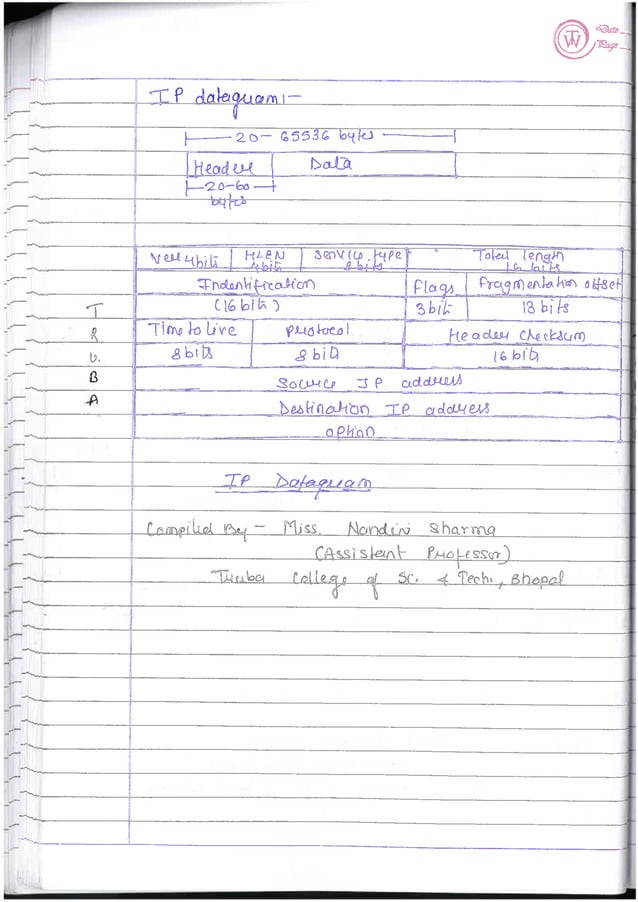 Date
Page
IP datagram:-
20- 65536 bytes
Header Data
20-60
bytes
Ver 4 bits HLEN 4 bits Service type 8 bits Total length 16 bits
Indentification Flags Fragmentation offset
(16 bits) 3 bits 13 bits
Time to Live Protocol Header Checksum
8 bits 8 bits 16 bits
Source IP address
Destination IP address
option
T
R
U
B
A
IP Datagram
Compiled By - Miss. Nandini Sharma
(Assistent Professor)
Truba College of Sc. & Tech., Bhopal